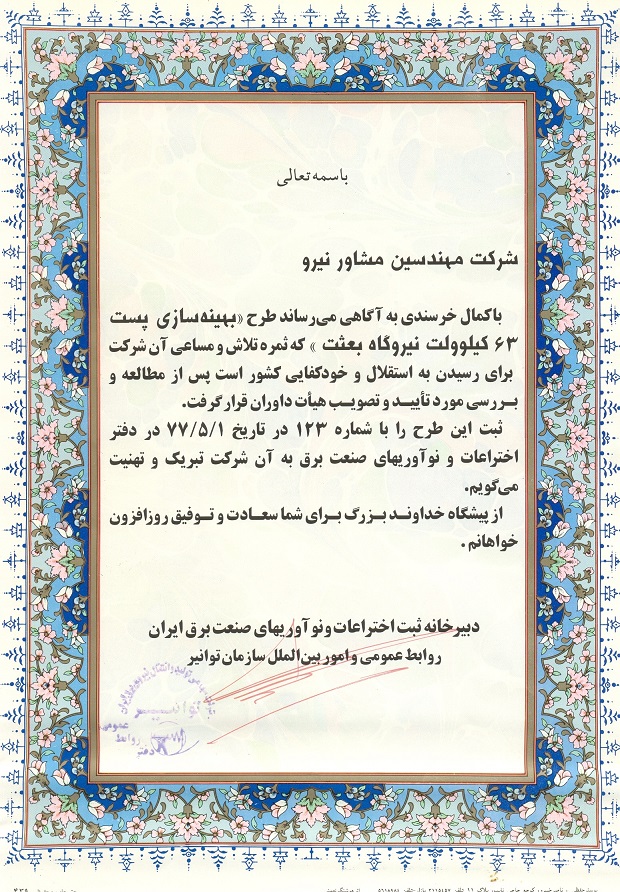 باسمه تعالی
شرکت مهندسین مشاور نیرو
باکمال خرسندی به آگاهی می‌رساند طرح «بهینه‌سازی پست
۶۳ کیلوولت نیروگاه بعثت» که ثمره تلاش و مساعی آن شرکت
برای رسیدن به استقلال و خودکفایی کشور است پس از مطالعه و
بررسی مورد تأیید و تصویب هیأت داوران قرار گرفت.
ثبت این طرح را با شماره ۱۲۳ در تاریخ ۷۷/۵/۱ در دفتر
اختراعات و نوآوریهای صنعت برق به آن شرکت تبریک و تهنیت
می‌گویم.
از پیشگاه خداوند بزرگ برای شما سعادت و توفیق روزافزون
خواهانم.
دبیرخانه ثبت اختراعات و نوآوریهای صنعت برق ایران
روابط عمومی و امور بین‌الملل سازمان توانیر
توانیر
روابط عمومی
دفتر